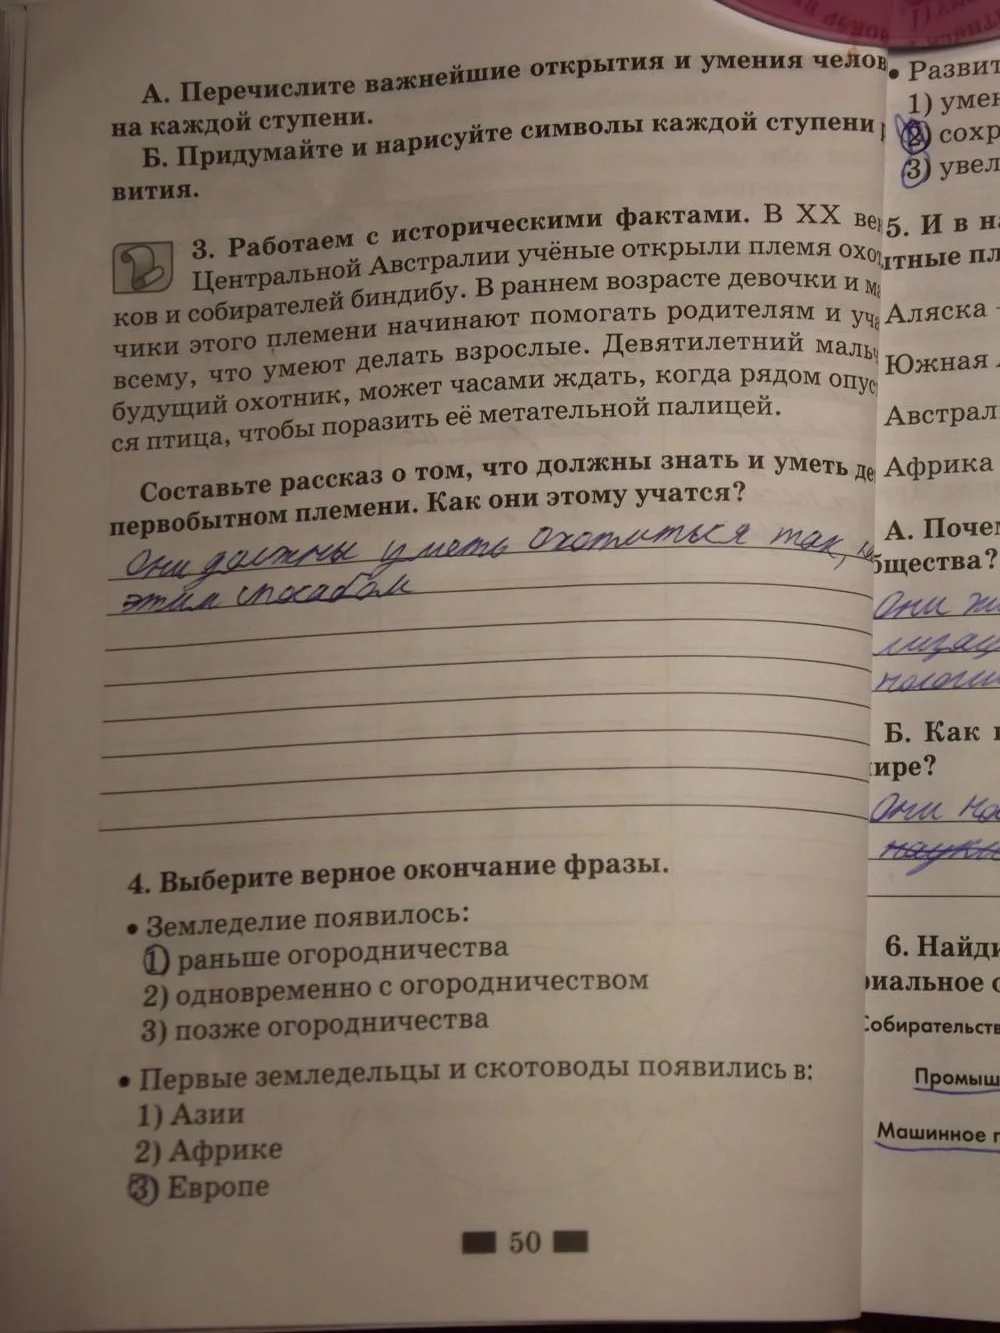 А. Перечислите важнейшие открытия и умения челов
на каждой ступени.
Б. Придумайте и нарисуйте символы каждой ступени
вития.
3. Работаем с историческими фактами. В XX ве
Центральной Австралии учёные открыли племя охо
ков и собирателей биндибу. В раннем возрасте девочки и м
чики этого племени начинают помогать родителям и уча
всему, что умеют делать взрослые. Девятилетний мальч
будущий охотник, может часами ждать, когда рядом опус
ся птица, чтобы поразить её метательной палицей.
Составьте рассказ о том, что должны знать и уметь де
первобытном племени. Как они этому учатся?
Они должны уметь охотиться так,
этим способом
4. Выберите верное окончание фразы.
• Земледелие появилось:
1) раньше огородничества
2) одновременно с огородничеством
3) позже огородничества
• Первые земледельцы и скотоводы появились в:
1) Азии
2) Африке
3) Европе
50
• Развит
1) умен
2) сохр
3) увел
5. И в н
ытные пл
Аляска -
Южная
Австрал
Африка
А. Почем
бщества?
Они
Б. Как
ире?
Они
6. Найди
риальное
Собирательств
Промыш
Машинное п